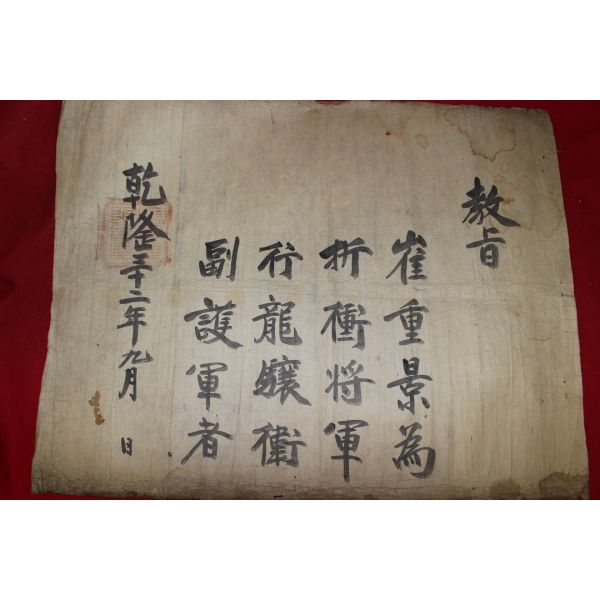 敎旨
崔重景為
折衝將軍
行龍驤衛
副護軍者
乾隆三十二年九月 日